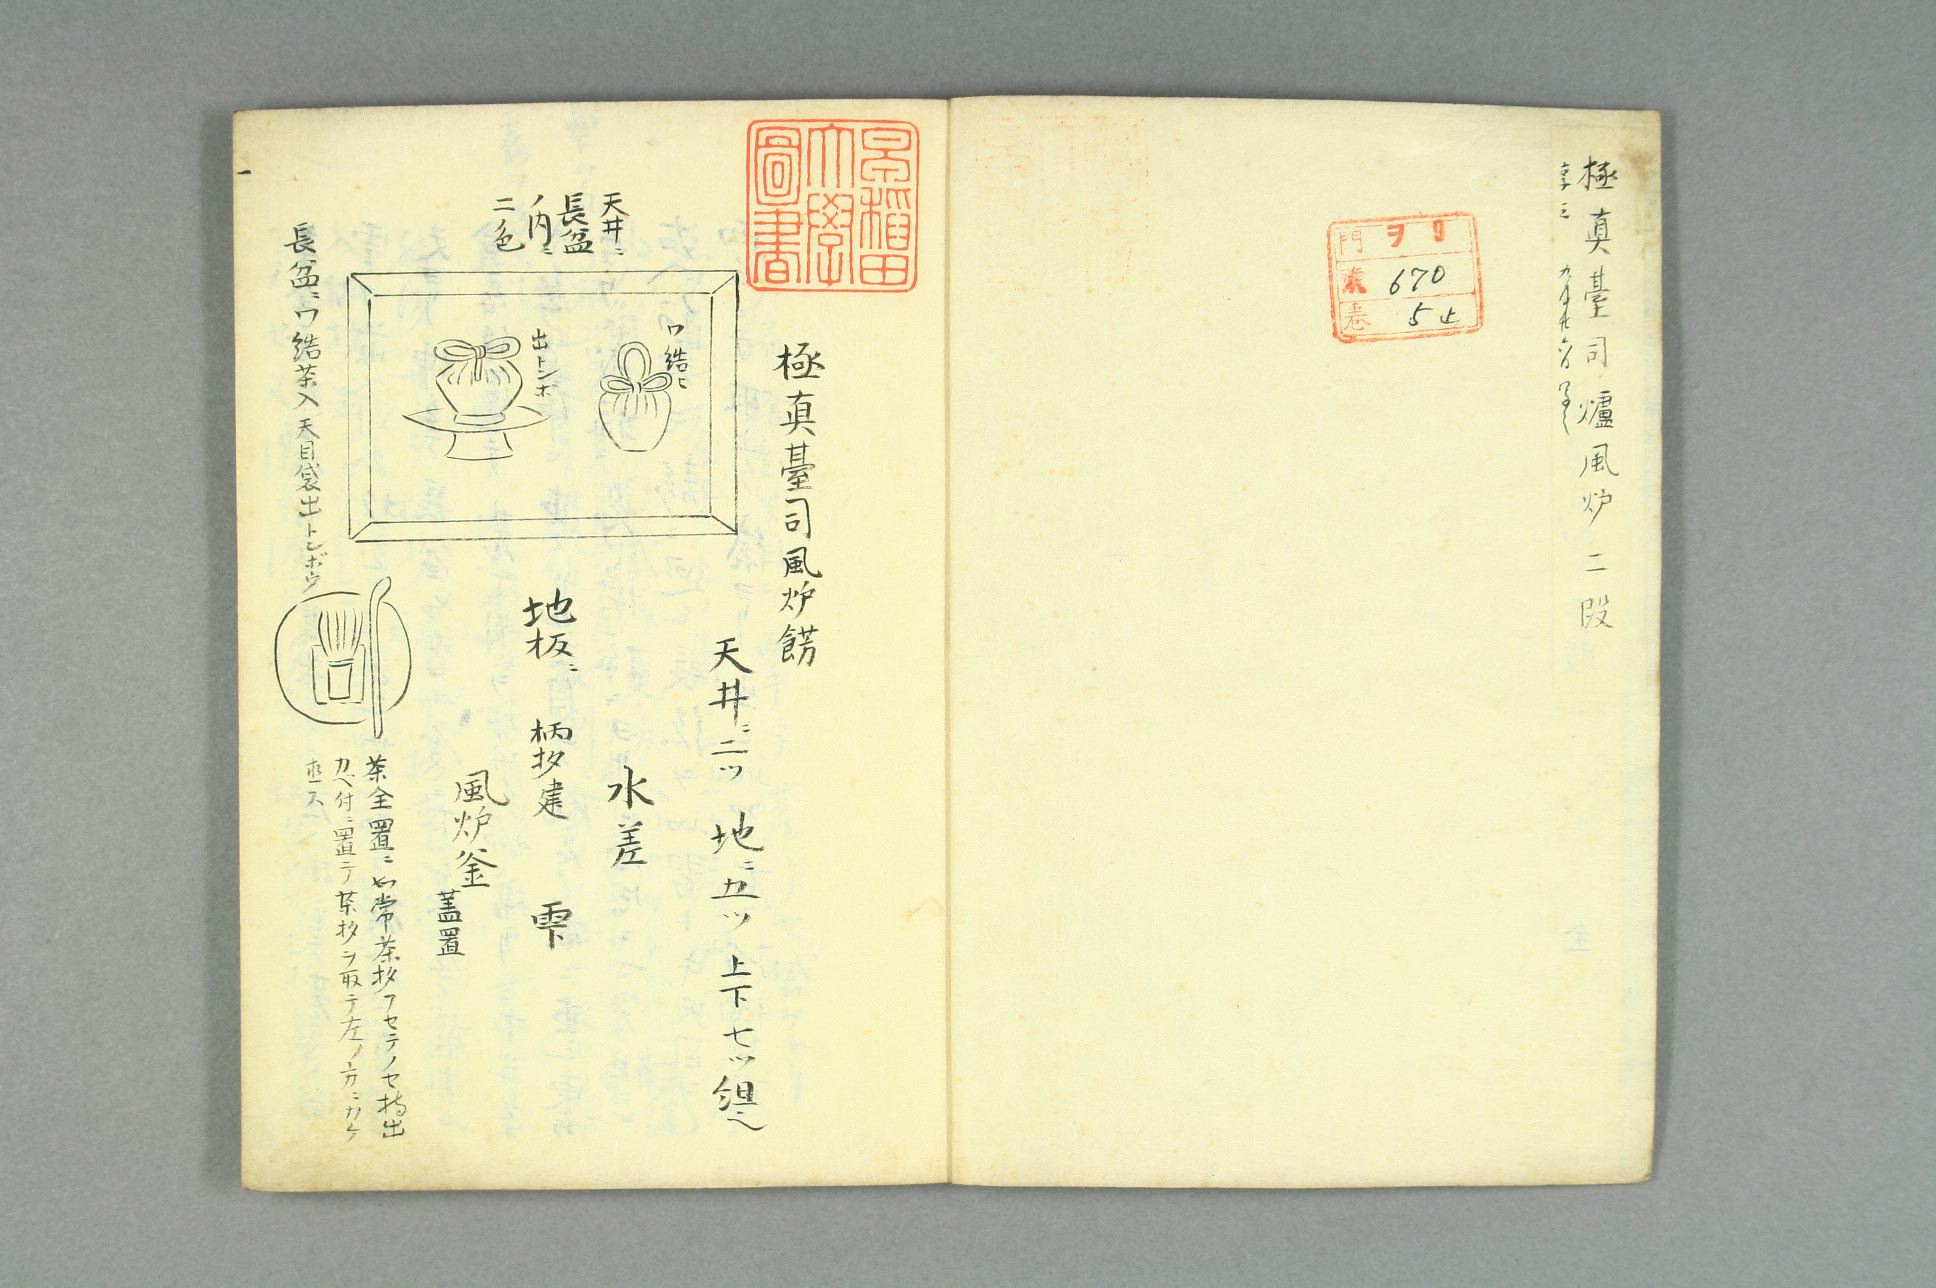 極真臺司爐風炉二段
門 ヲ9
670
巻 5止
早稲田大學圖書
極真臺司風炉餝
天井ニ二ツ 地ニ五ツ 上下七ツ組ニ〆
天井ニ
長盆
ノ内ニ
二色
ワ結ヒ
出トンボ
水差
地板ニ 柄杓建 雫下
風炉釜
蓋置
長盆ニワ結茶入天目袋出トンボウ
茶全置ニ如常茶杓フセテノセ持出
カベ付ニ置テ茶杓ヲ取テ左ノ方ニカケ